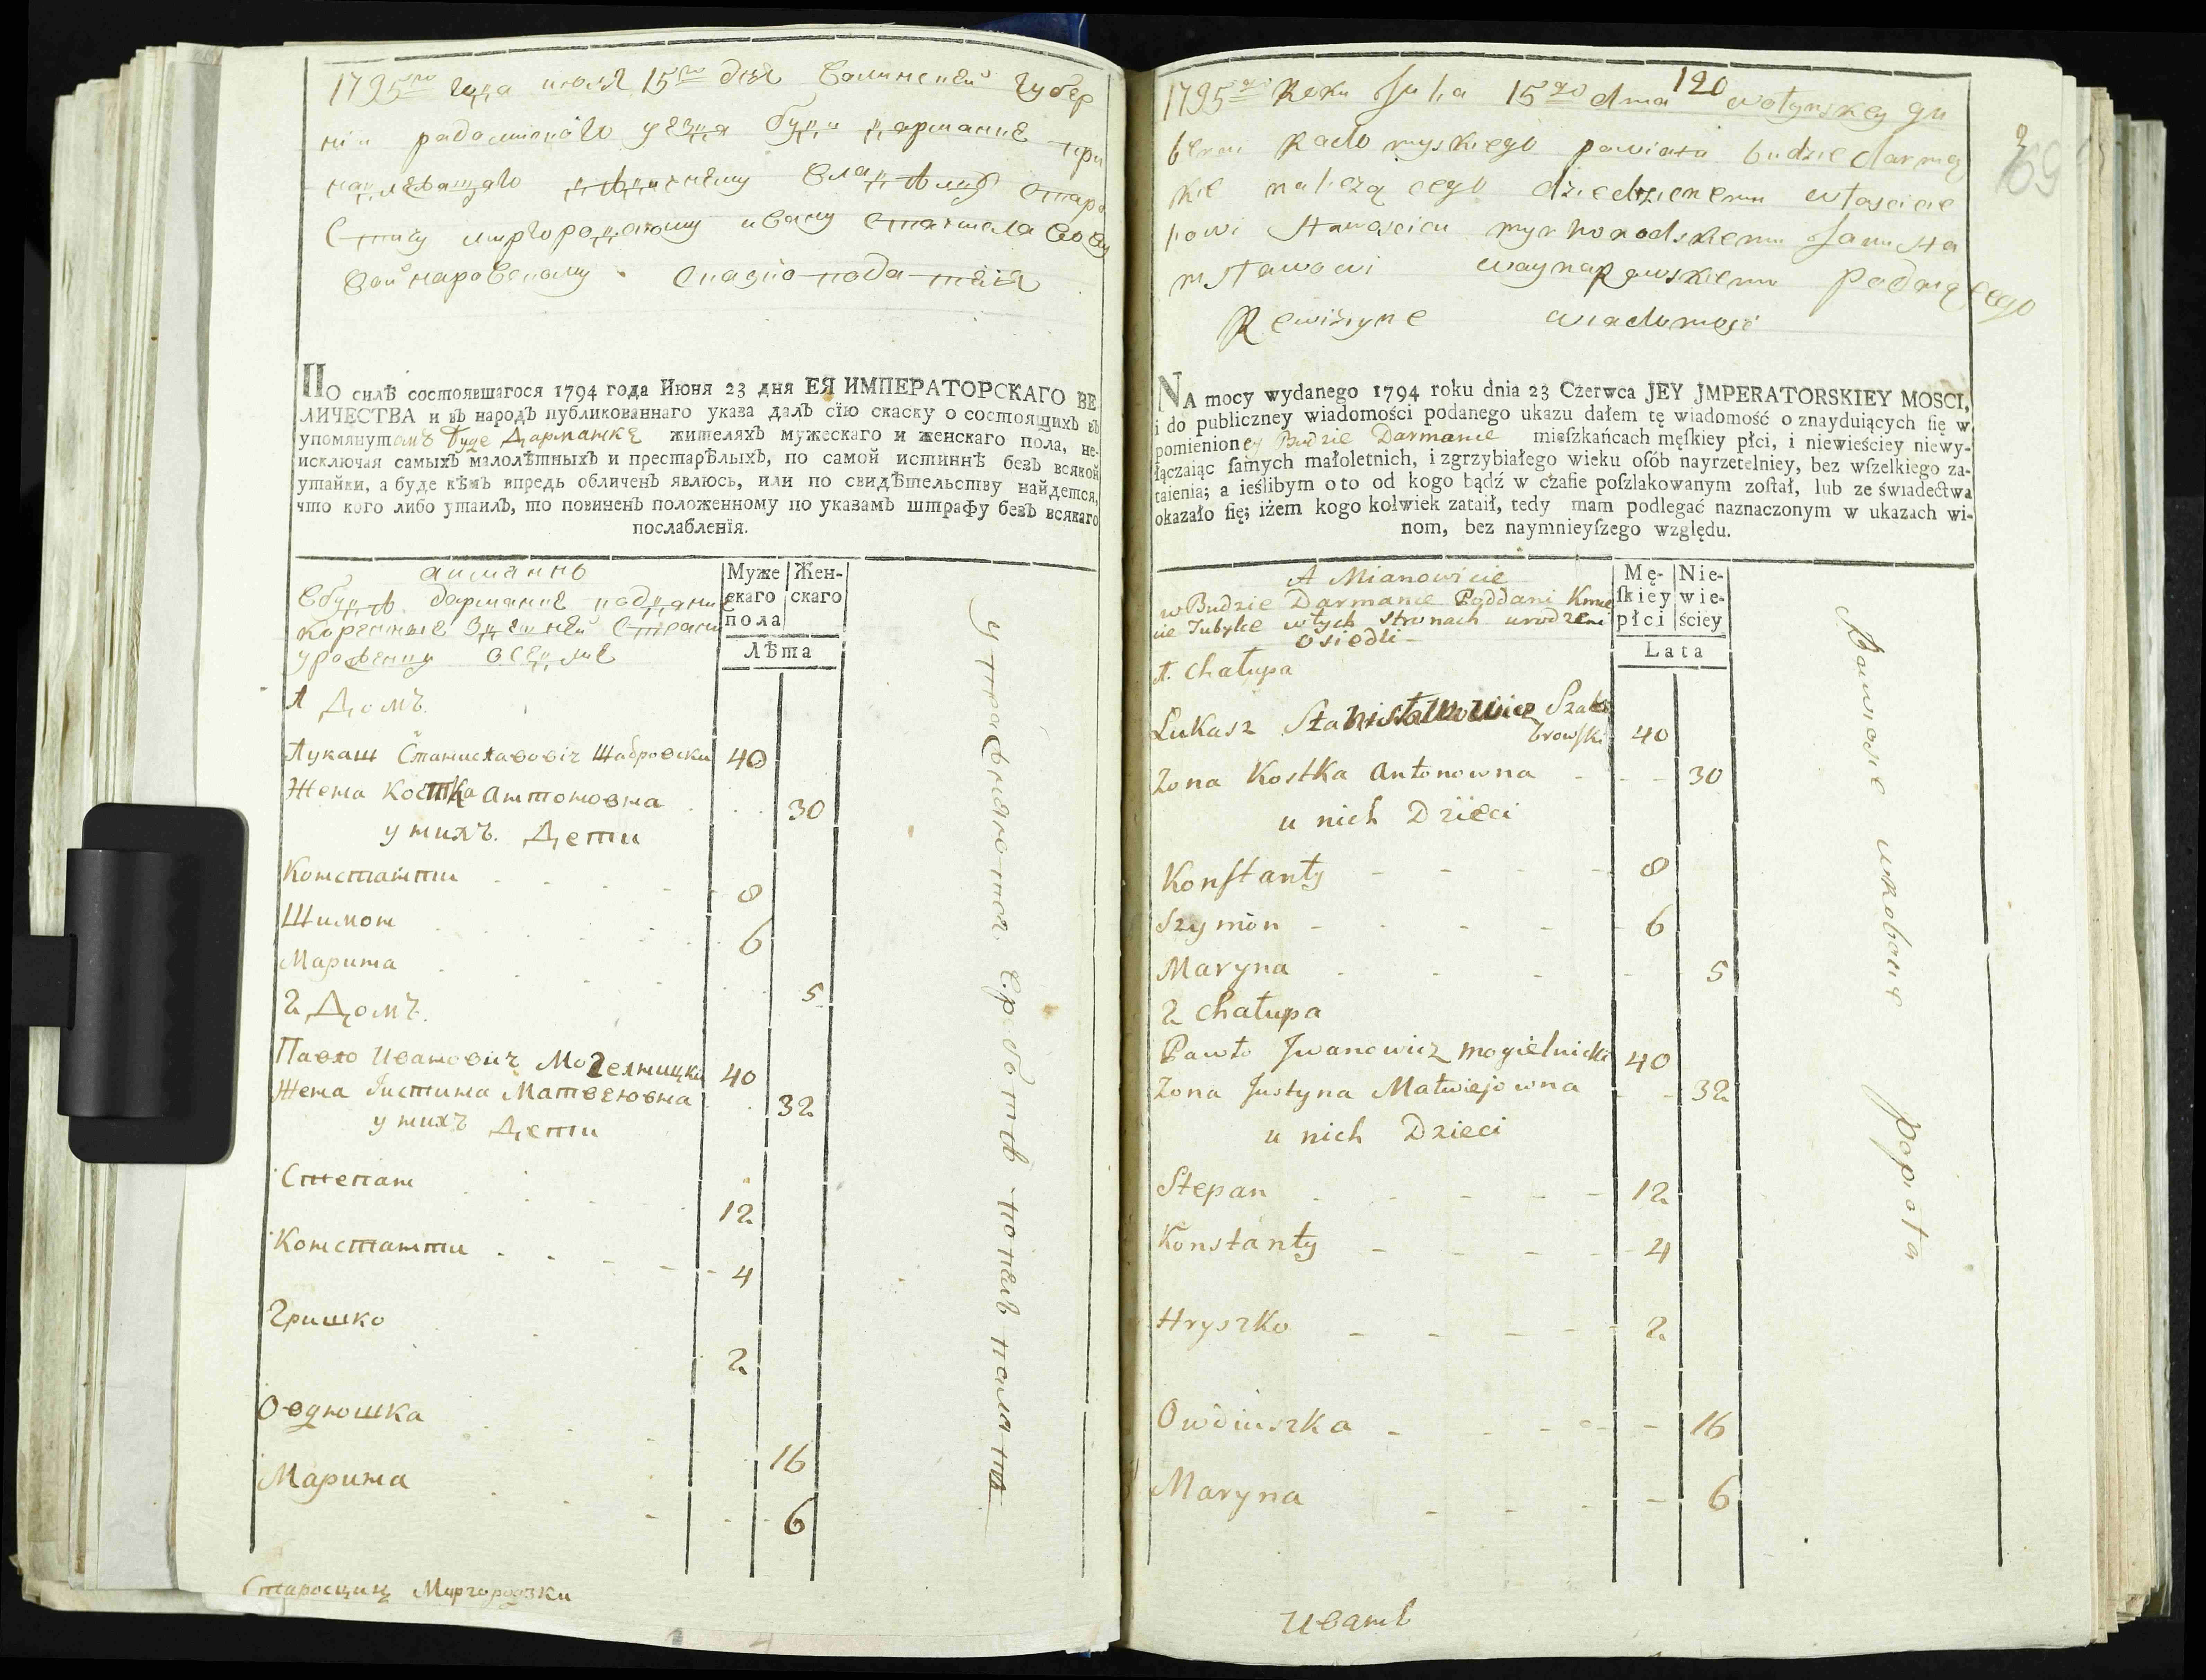 1795го года июля 15го дня Волинской губер
нiи радомиского уезда буди дармание при
надлежащаго дѣдичнему владѣлцу старо
стичу миргородскому ивану станиславову
войнаровскому
ПО силѢ состоявшагося 1794 года Июня 23 дня ЕЯ ИМПЕРАТОРСКАГО ВЕ-
ЛИЧЕСТВА и въ народЪ публикованнаго указа далЪ сїю скаску о состоящихЪ въ
упомянутомъ буде Дарманке жителяхЪ мужескаго и женскаго пола, не-
исключая самыхЪ малолѢтныхЪ и престарѢлыхЪ, по самой истиннѢ безЪ всякой
утайки, а буде кѢмЪ впредь обличенЪ явлюсь, или по свидѢтельству найдется,
что кого либо утаилЪ, то повиненЪ положенному по указамЪ штрафу безЪ всякаго
послабленїя.
аимянно
вбудѣ дармание поддание
коренные здешней сторони
уроженци оседлие
Муже
скаго
пола
Жен-
скаго
ЛѢта
1 Домъ.
Лукаш Станиславовiч Шабровски 40
Жена Костка Антоновна 30
у нихъ. Дети
Константи 8
Шимон 6
Марина 5
2 Домъ.
Павло Ивановичъ Могелницки 40
Жена Iистина Матвеювна 32
у нихъ Дети
Степан 12
Константи 4
Гришко 2
Овдюшка 16
Марина 6
Старосциц Миргородзки
120
69
1795go Roku Jula 15go dnia wołynskey gu
berni Radomyskiego powiatu budzie darma
kie należącego dziedzicznemu właścicie
lowi Starościcu myrhorodskiemu Janu Sta
nisławowi waynarowskiemu podaiącego
Rewizyyne wiadomość
NA mocy wydanego 1794 roku dnia 23 Czerwca JEY JMPERATORSKIEY MOSCI,
i do publiczney wiadomości podanego ukazu dałem tę wiadomość o znayduiących ſię w
pomienioney Budzie Darmanie mieſzkańcach męſkiey płci, i niewieściey niewy-
łączaiąc ſamych małoletnich, i zgrzybiałego wieku oſób nayrzetelniey, bez wſzelkiego za-
taienia; a ieślibym o to od kogo bądź w czaſie poſzlakowanym zoſtał, lub ze świadectwa
okazało ſię; iżem kogo kolwiek zataił, tedy mam podlegać naznaczonym w ukazach wi-
nom, bez naymnieyſzego względu.
A Mianowicie
w Budzie Darmanie Poddani Kmie
cie Tubylce w tych stronach urodzeni
osiedli
Mę-
ſkiey
płci
Nie-
wie-
ściey
Lata
1. Chałupa
Łukasz Stanisławowicz Szab
browſki 40
Zona Kostka Antonowna 30
u nich Dzieci
Konſtanty 8
Szymon 6
Maryna 5
2 Chałupa
Pawło Jwanowicz mogielnicki 40
Zona Justyna Matwiejowna 32
u nich Dzieci
Stepan 12
Konstanty 4
Hryszko 2
Owdiuszka 16
Maryna 6
Иванъ